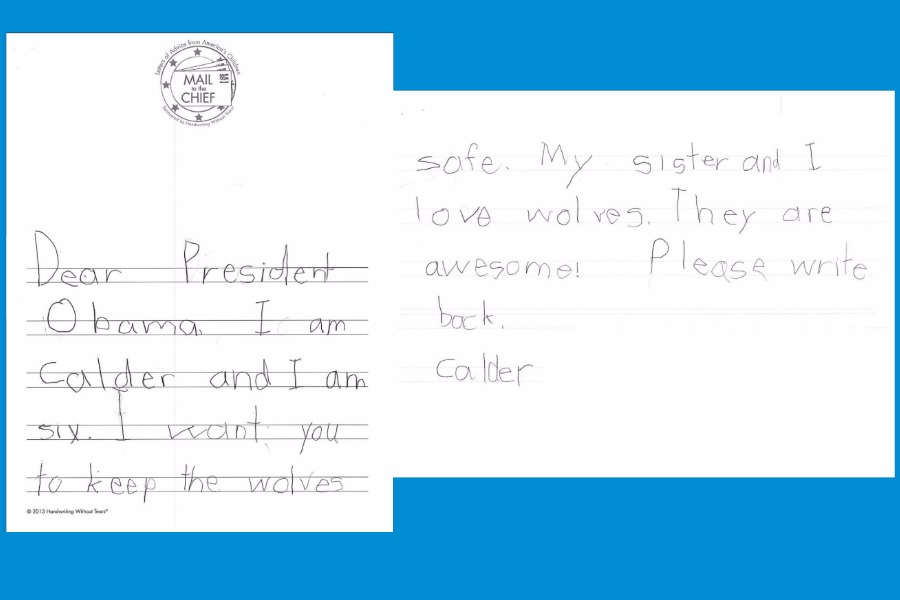 Letters of Advice from America's Children
MAIL
to the
CHIEF
Sponsored by Handwriting Without Tears
Dear President
Obama. I am
Calder and I am
six. I want you
to keep the wolves
© 2013 Handwriting Without Tears®
safe. My sister and I
love wolves. They are
awesome! Please write
back.
Calder